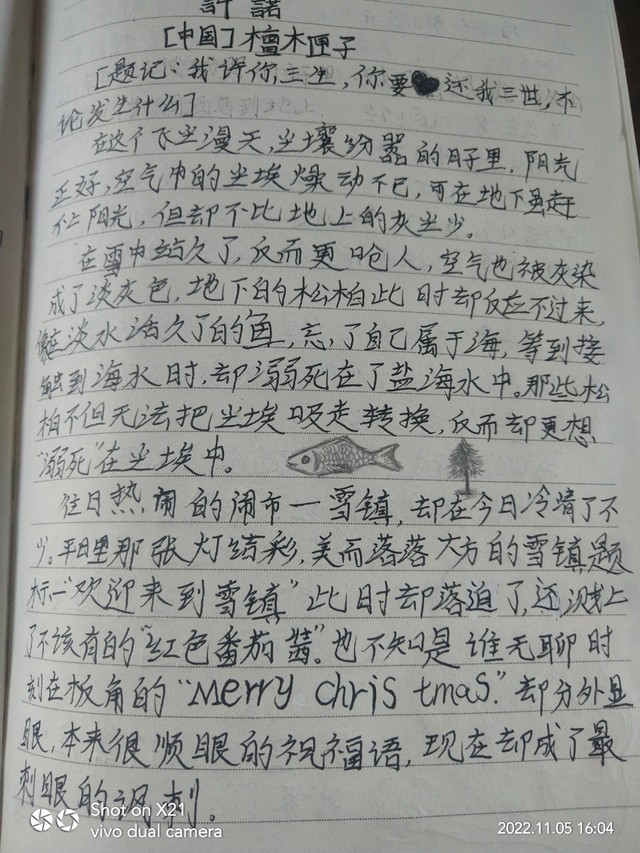 許諾
[中国]檀木匣子
[题记:我许你三生,你要还我三世,不
论发生什么]
在这个飞尘漫天,尘壤纷嚣的日子里,阳光
正好,空气中的尘埃燥动不已,可在地下虽赶
不上阳光,但却不比地上的灰尘少。
在雪中站久了,反而更呛人,空气也被灰染
成了淡灰色,地下的松柏此时却反应不过来,
像在淡水活久了的鱼,忘,了自己属于海,等到接
触到海水时,却溺死在了盐海水中。那些松
柏不但无法把尘埃吸走转换,反而却更想
“溺死”在尘埃中。
往日热闹的闹市一雪镇,却在今日冷清了不
少。平日里那张灯结彩,美而落落大方的雪镇题
标一“欢迎来到雪镇”此时却落迫了,还溅上
了不该有的“红色番茄酱”。也不知是谁无聊时
刻在板角的“Merry chris tmas.”却分外显
眼,本来很顺眼的祝福语,现在却成了最
刺眼的讽刺。
Shot on X21
vivo dual camera
2022.11.05 16:04